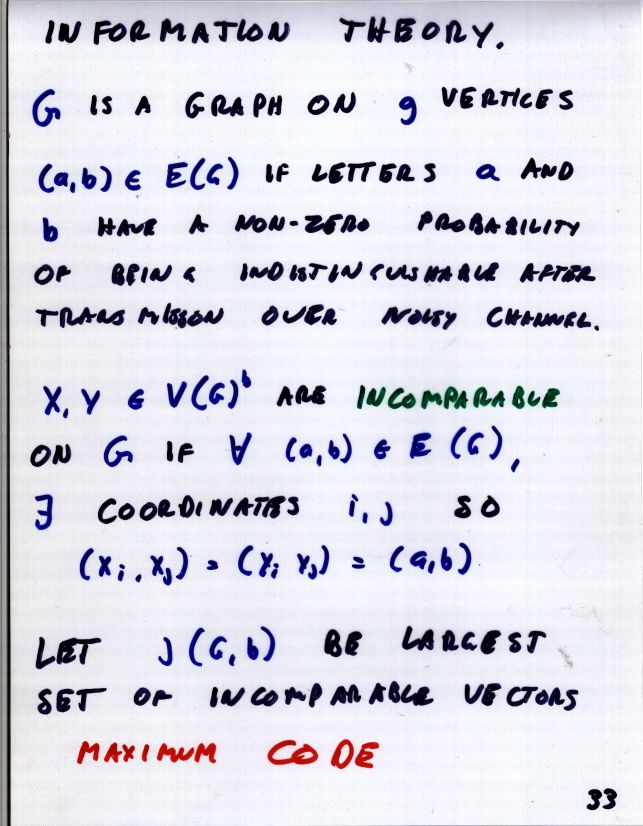 INFORMATION THEORY.
G IS A GRAPH ON g VERTICES
(a,b) ∈ E(G) IF LETTERS a AND
b HAVE A NON-ZERO PROBABILITY
OF BEING INDISTINGUISHABLE AFTER
TRANSMISSON OVER NOISY CHANNEL.
X, Y ∈ V(G)^b ARE INCOMPARABLE
ON G IF ∀ (a,b) ∈ E (G),
∃ COORDINATES i, j SO
(X_i, X_j) = (Y_i Y_j) = (a,b)
LET J(G,b) BE LARGEST
SET OF INCOMPARABLE VECTORS
MAXIMUM CODE
33